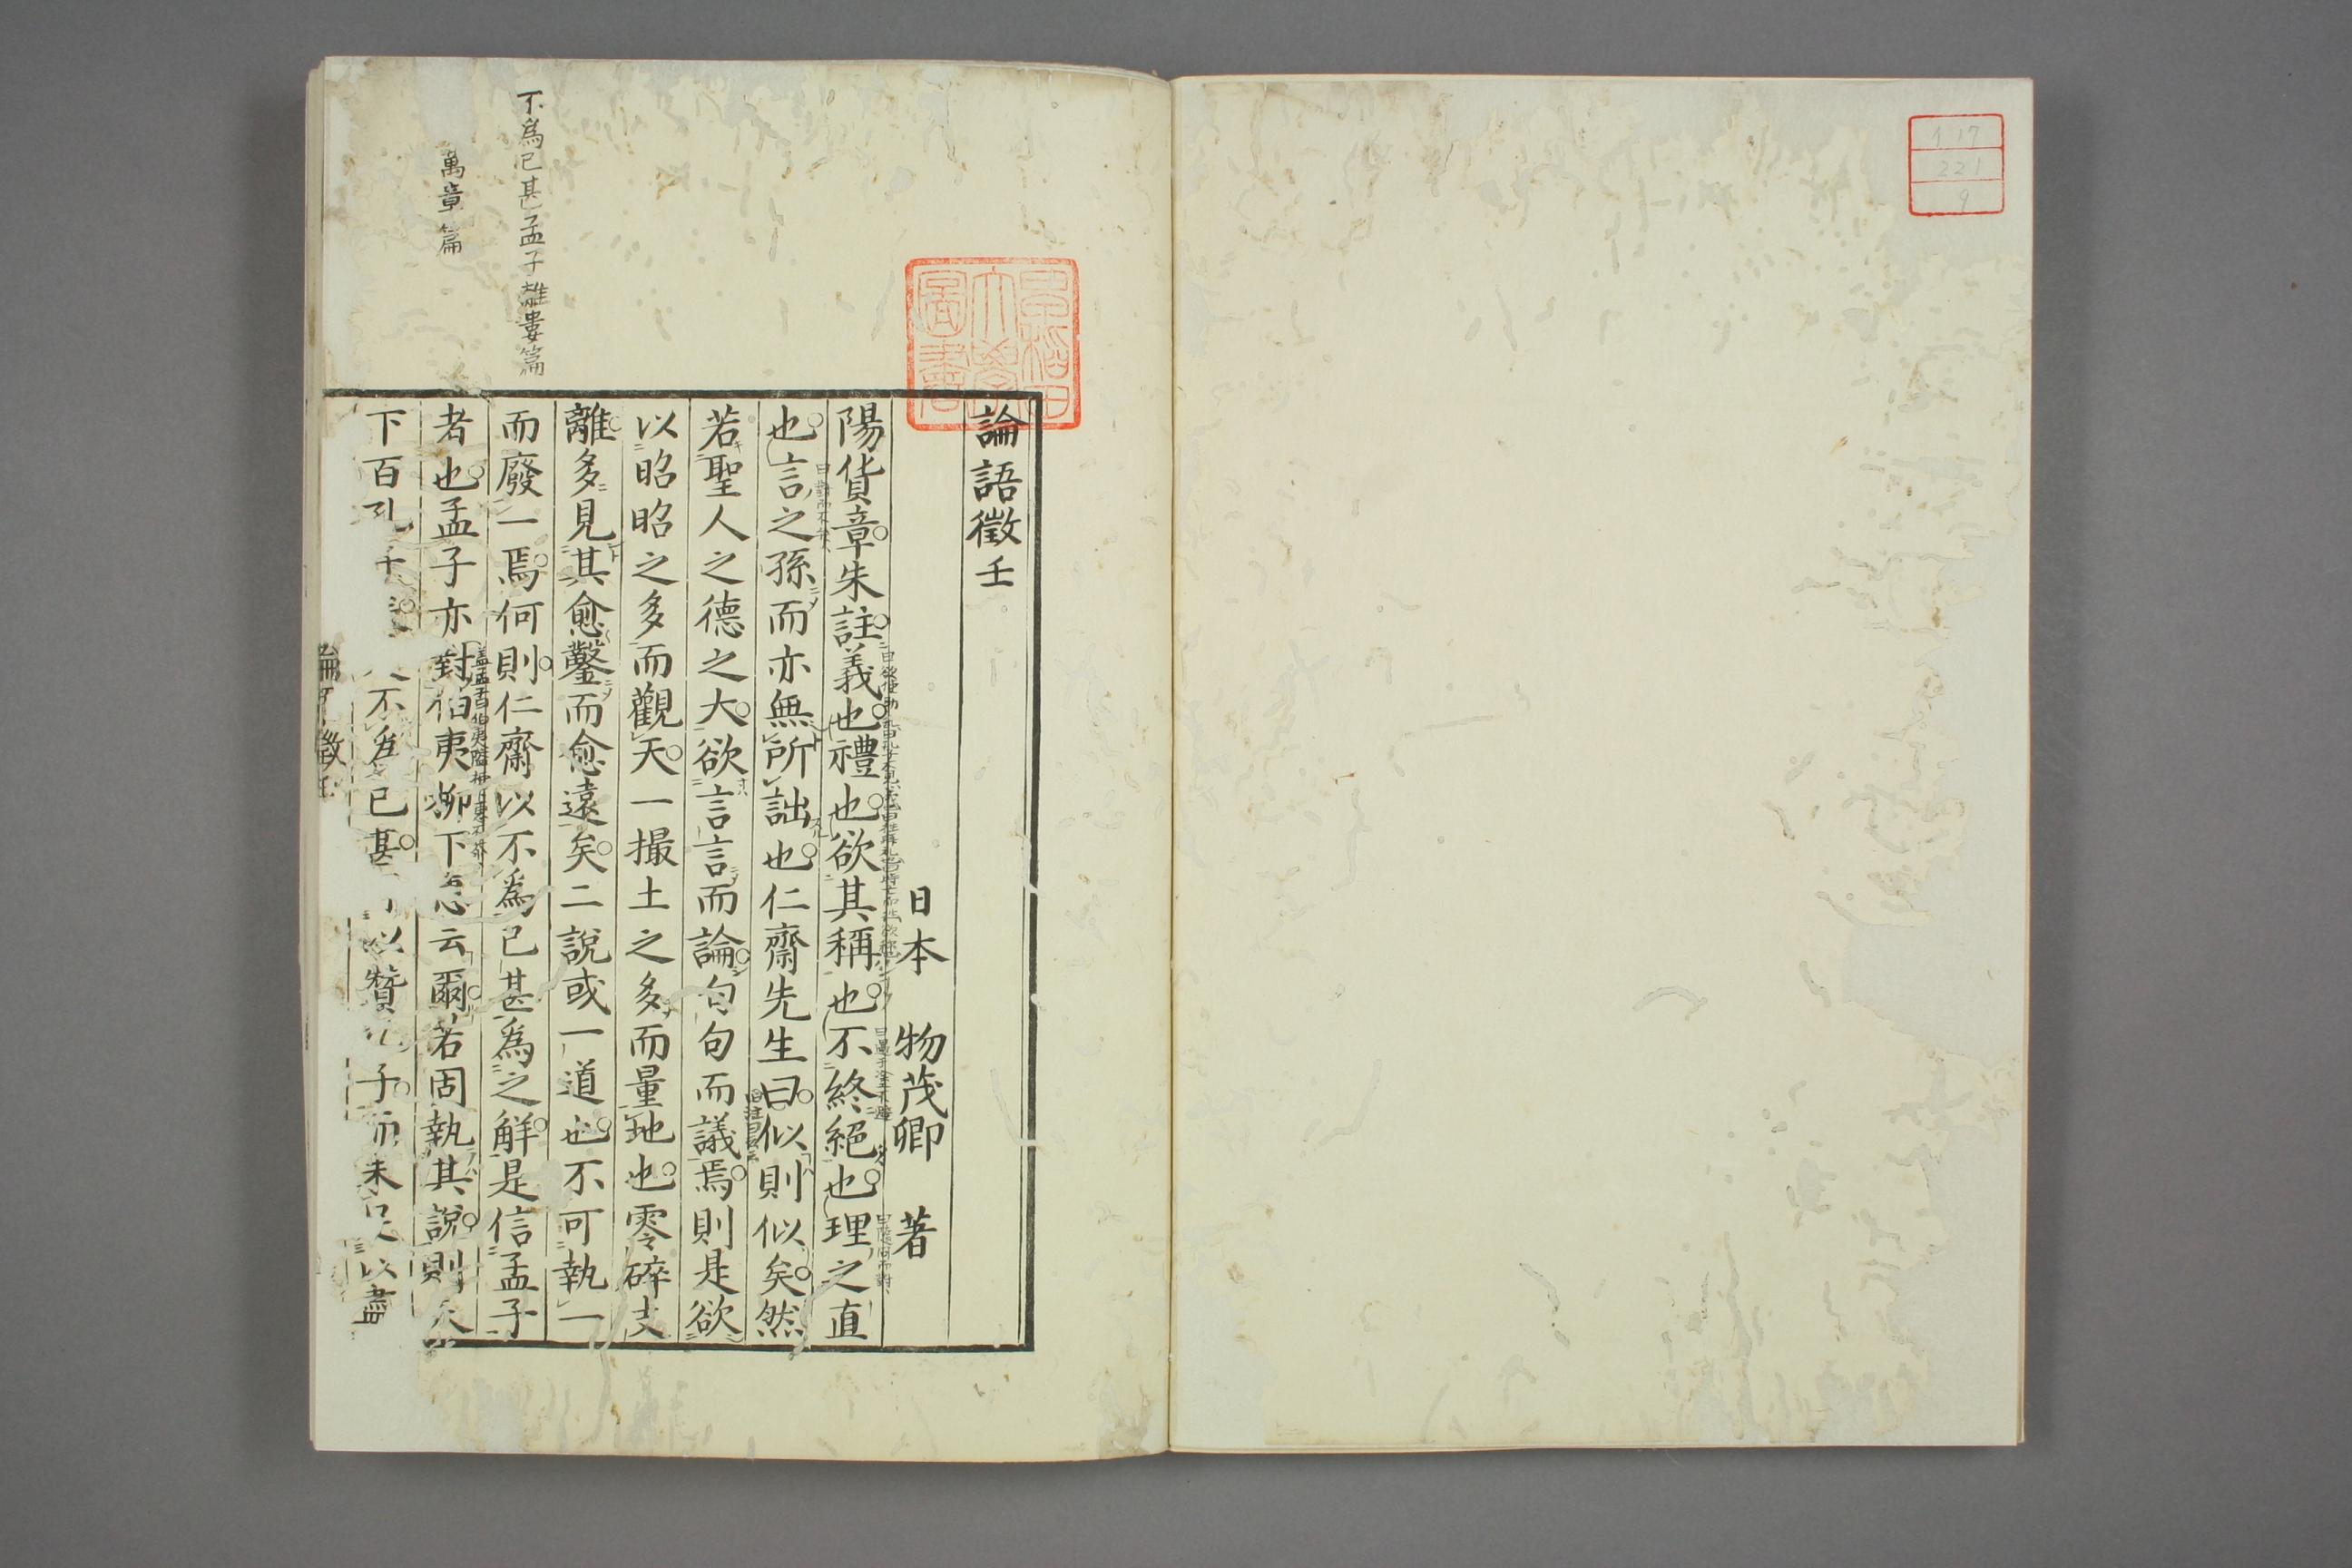 117
221
9
早稻田
大學
圖書
論語徵壬
日本 物茂卿 著
陽貨章朱註義也禮也欲其稱也不終絕也理之直
也言之孫而亦無所詘也仁齋先生曰似則似矣然
若聖人之德之大欲言言而論句句而議焉則是欲
以昭昭之多而觀天一撮土之多而量地也零碎支
離多見其愈鑿而愈遠矣二說或一道也不可執一
而廢一焉何則仁齋以不爲已甚爲之解是信孟子
者也孟子亦對伯夷柳下惠云爾若固執其說則天
下百孔千 不爲已甚 以贊孔子而未足以盡
不爲已甚孟子離婁篇
萬章篇
論語徵 壬